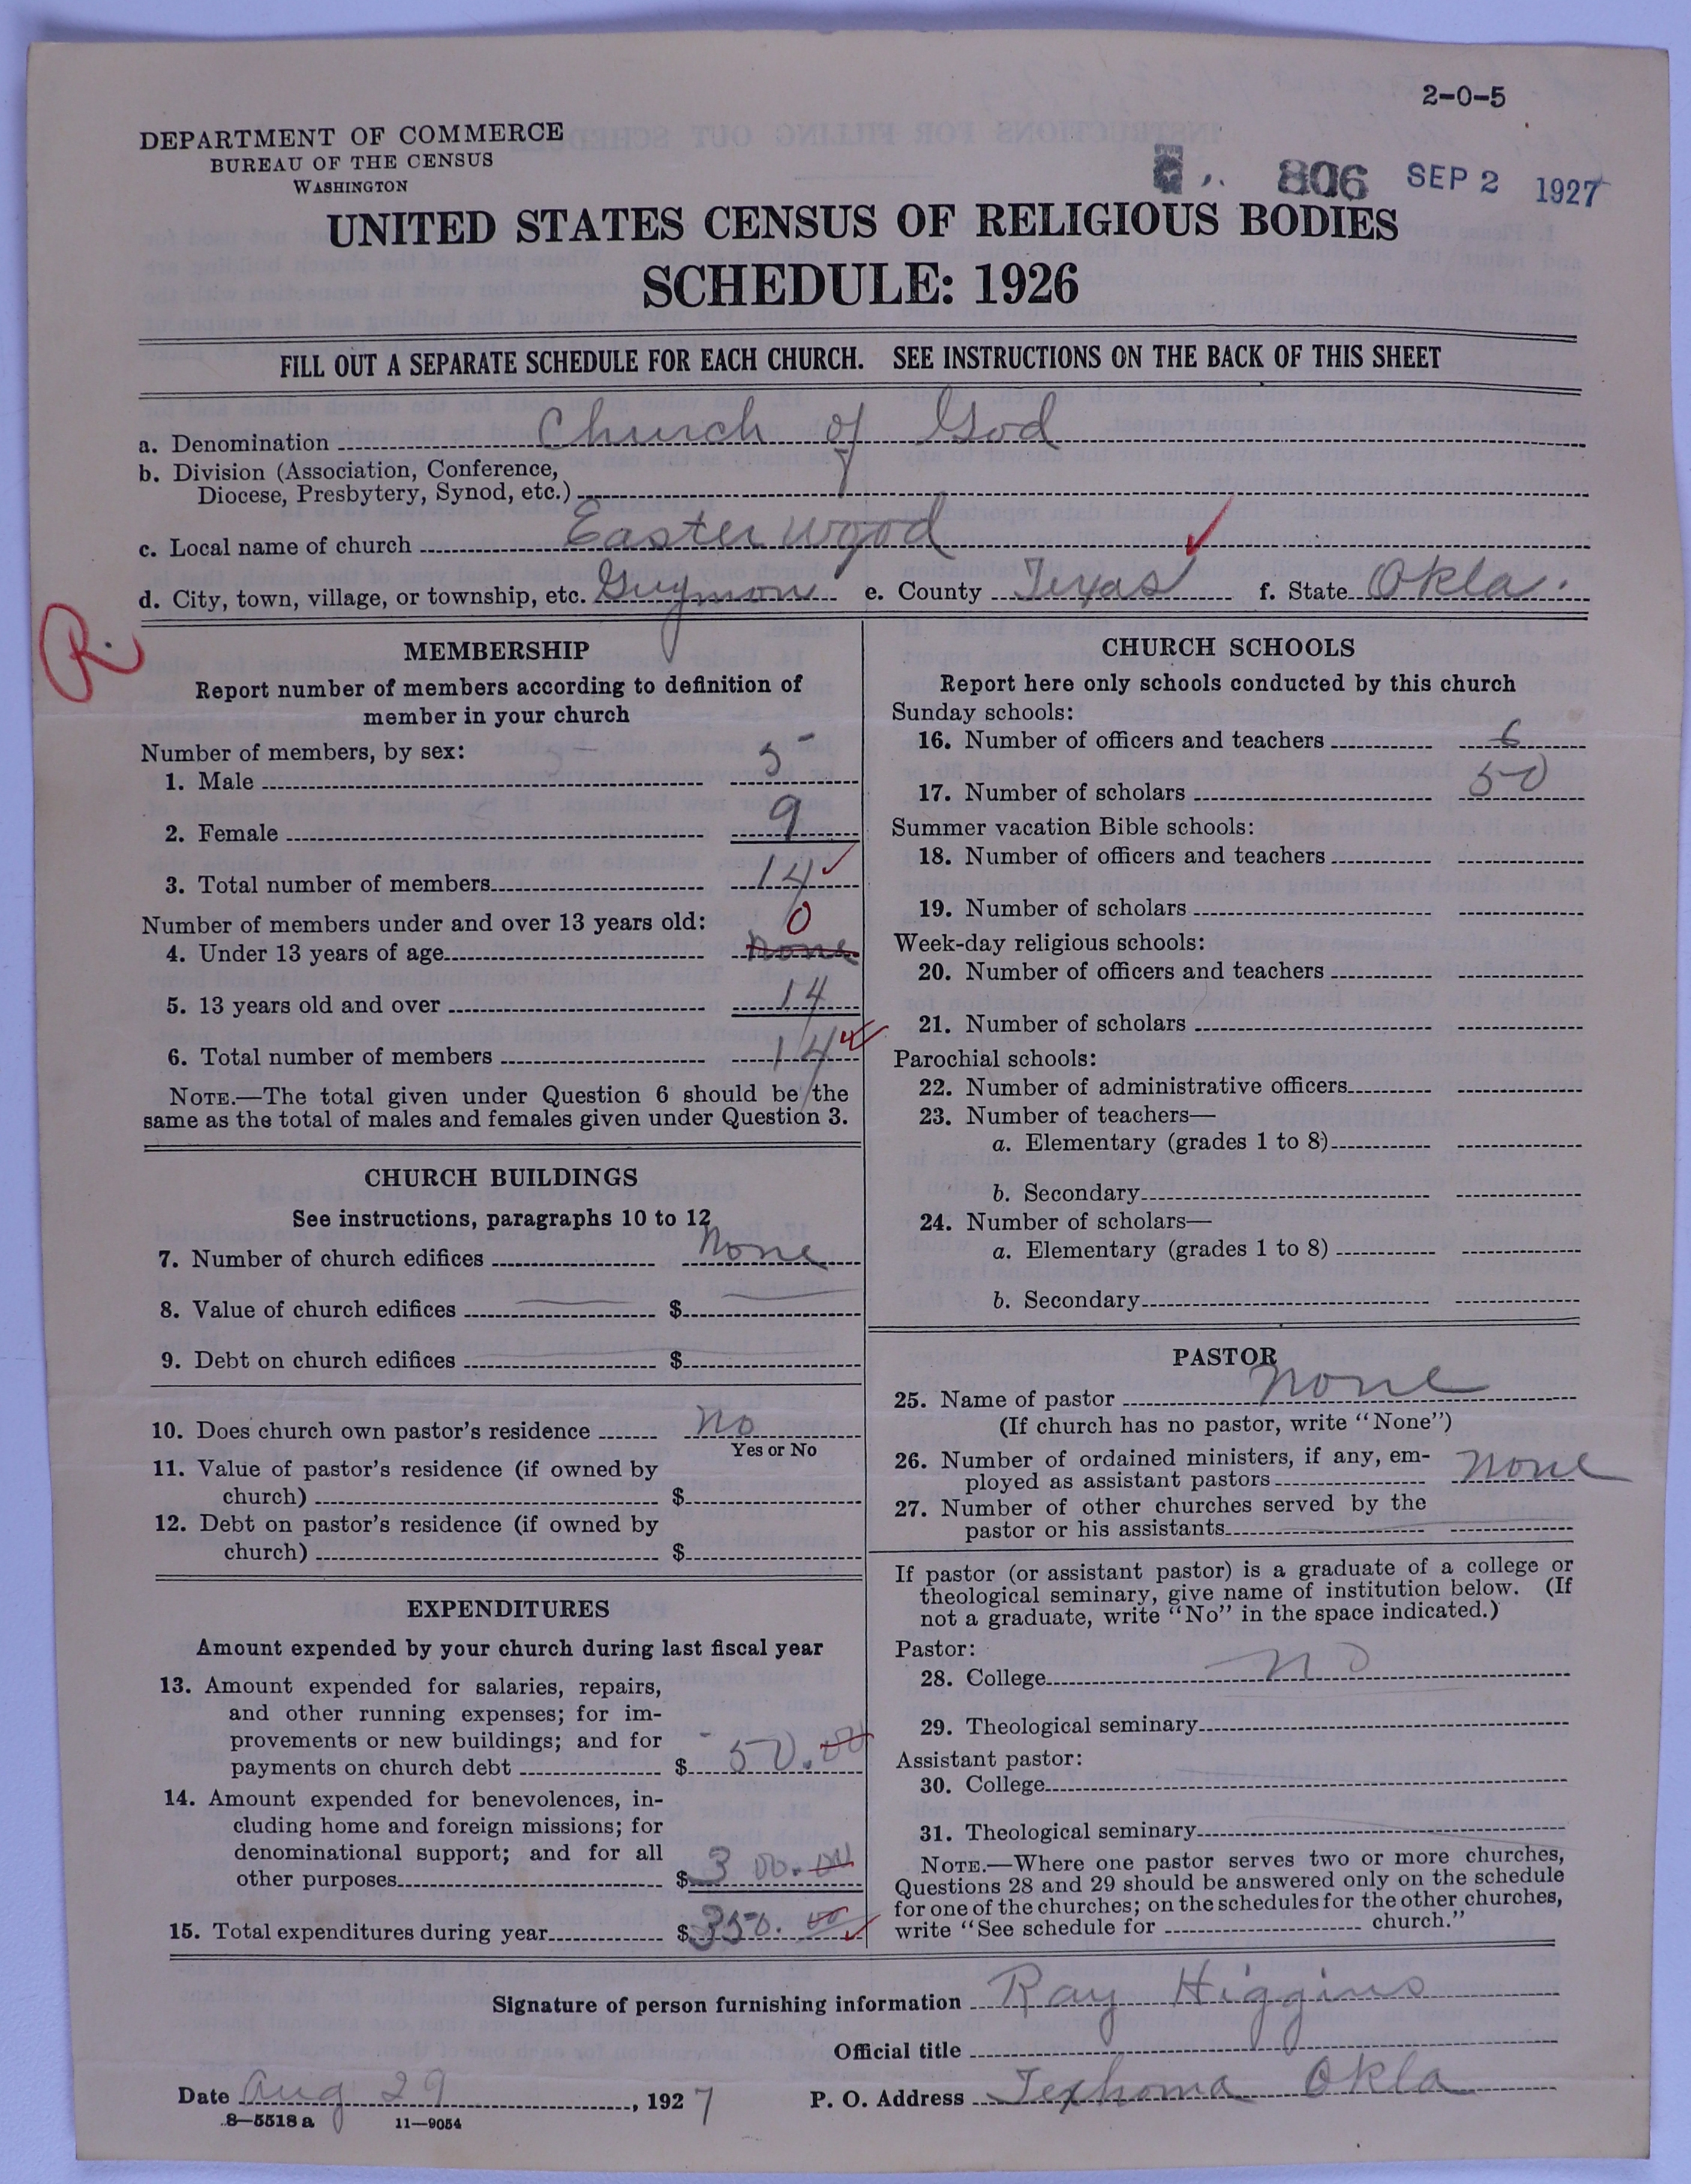 2-0-5
DEPARTMENT OF COMMERCE
BUREAU OF THE CENSUS
WASHINGTON
806 SEP 2 1927
UNITED STATES CENSUS OF RELIGIOUS BODIES
SCHEDULE: 1926
FILL OUT A SEPARATE SCHEDULE FOR EACH CHURCH. SEE INSTRUCTIONS ON THE BACK OF THIS SHEET
a. Denomination Church of God
b. Division (Association, Conference,
Diocese, Presbytery, Synod, etc.)
c. Local name of church Easterwood
d. City, town, village, or township, etc. Guymon e. County Texas f. State Okla.
R.
MEMBERSHIP
Report number of members according to definition of
member in your church
Number of members, by sex:
1. Male 5
2. Female 9
3. Total number of members 14
Number of members under and over 13 years old: 0
4. Under 13 years of age none
5. 13 years old and over 14
6. Total number of members 14
NOTE.—The total given under Question 6 should be the
same as the total of males and females given under Question 3.
CHURCH BUILDINGS
See instructions, paragraphs 10 to 12
7. Number of church edifices none
8. Value of church edifices $
9. Debt on church edifices $
10. Does church own pastor's residence no
Yes or No
11. Value of pastor's residence (if owned by
church) $
12. Debt on pastor's residence (if owned by
church) $
EXPENDITURES
Amount expended by your church during last fiscal year
13. Amount expended for salaries, repairs,
and other running expenses; for im-
provements or new buildings; and for
payments on church debt $ 50.00
14. Amount expended for benevolences, in-
cluding home and foreign missions; for
denominational support; and for all
other purposes $ 300.00
15. Total expenditures during year $ 350.00
CHURCH SCHOOLS
Report here only schools conducted by this church
Sunday schools:
16. Number of officers and teachers 6
17. Number of scholars 50
Summer vacation Bible schools:
18. Number of officers and teachers
19. Number of scholars
Week-day religious schools:
20. Number of officers and teachers
21. Number of scholars
Parochial schools:
22. Number of administrative officers
23. Number of teachers—
a. Elementary (grades 1 to 8)
b. Secondary
24. Number of scholars—
a. Elementary (grades 1 to 8)
b. Secondary
PASTOR
25. Name of pastor none
(If church has no pastor, write "None")
26. Number of ordained ministers, if any, em-
ployed as assistant pastors none
27. Number of other churches served by the
pastor or his assistants
If pastor (or assistant pastor) is a graduate of a college or
theological seminary, give name of institution below. (If
not a graduate, write "No" in the space indicated.)
Pastor:
28. College no
29. Theological seminary
Assistant pastor:
30. College
31. Theological seminary
NOTE.—Where one pastor serves two or more churches,
Questions 28 and 29 should be answered only on the schedule
for one of the churches; on the schedules for the other churches,
write "See schedule for church."
Signature of person furnishing information Ray Higgins
Official title
Date Aug 29, 1927 P. O. Address Texhoma Okla
8—5518 a 11—9054